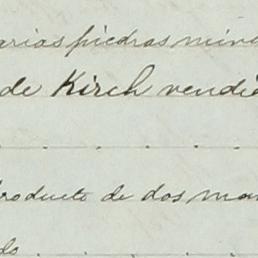 arias piedras mine
de Kirch vendi
roducto de dos ma
do